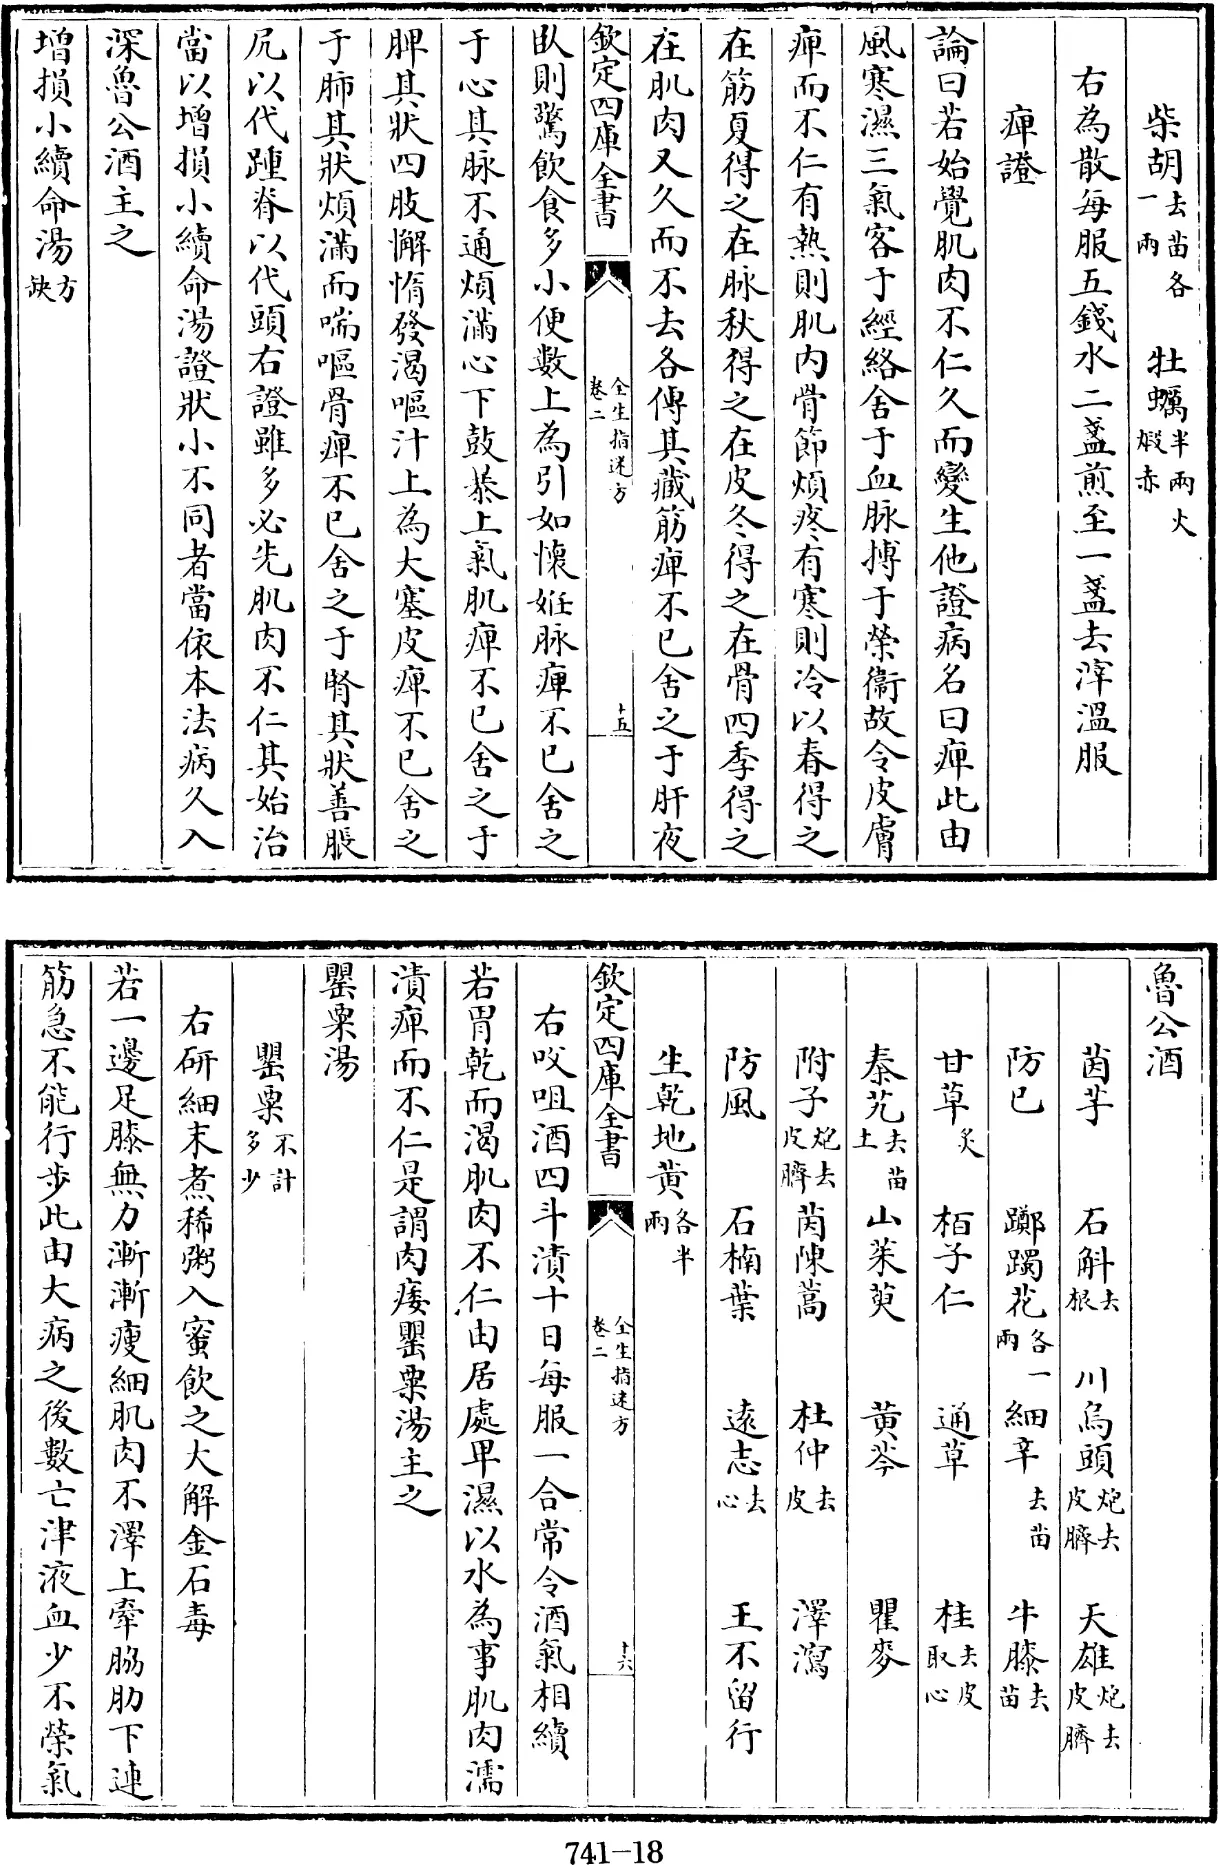 柴胡去苗各一兩　牡蠣半兩火煅赤
右為散每服五錢水二盞煎至一盞去滓溫服
痺證
論曰若始覺肌肉不仁久而變生他證病名曰痺此由
風寒濕三氣客于經絡舍于血脉搏于榮衞故令皮膚
痺而不仁有熱則肌肉骨節煩疼有寒則冷以春得之
在筋夏得之在脉秋得之在皮冬得之在骨四季得之
在肌肉又久而不去各傳其藏筋痺不已舍之于肝夜
欽定四庫全書　全生指迷方卷二　十五
臥則驚飲食多小便數上為引如懷姙脉痺不已舍之
于心其脉不通煩滿心下鼓暴上氣肌痺不已舍之于
脾其狀四肢懈惰發渴嘔汁上為大塞皮痺不已舍之
于肺其狀煩滿而喘嘔骨痺不已舍之于腎其狀善脹
尻以代踵脊以代頭右證雖多必先肌肉不仁其始治
當以增損小續命湯證狀小不同者當依本法病久入
深魯公酒主之
增損小續命湯方缺
魯公酒
茵芋　石斛去根　川烏頭炮去皮臍　天雄炮去皮臍
防已　躑躅花各一兩　細辛去苗　牛膝去苗
甘草炙　栢子仁　通草　桂去皮取心
秦艽去苗土　山茱萸　黃芩　瞿麥
附子炮去皮臍　茵陳蒿　杜仲去皮　澤瀉
防風　石楠葉　遠志去心　王不留行
生乾地黃各半兩
欽定四庫全書　全生指迷方卷二　十六
右㕮咀酒四斗漬十日每服一合常令酒氣相續
若胃乾而渴肌肉不仁由居處卑濕以水為事肌肉濡
漬痺而不仁是謂肉痿罌粟湯主之
罌粟湯
罌粟不計多少
右研細末煮稀粥入蜜飲之大解金石毒
若一邊足膝無力漸漸瘦細肌肉不澤上牽脇肋下連
筋急不能行步此由大病之後數亡津液血少不榮氣
741-18